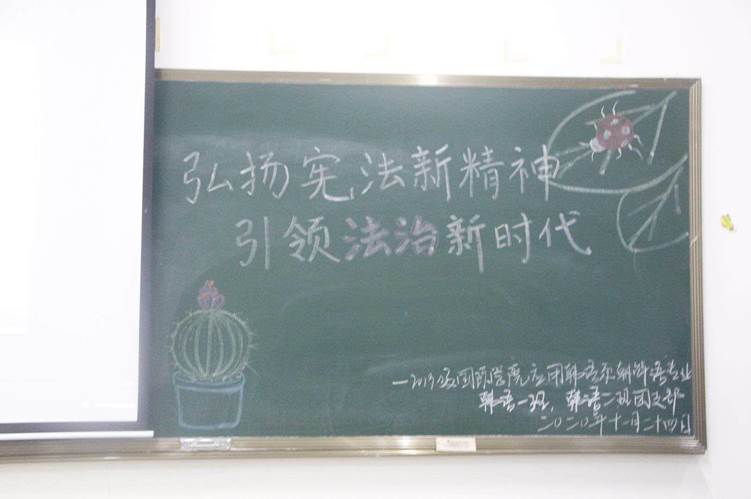 弘扬宪法新精神
引领法治新时代
—2019级国际学院应用韩语系朝鲜语专业
韩语一班、韩语二班团支部
二〇二〇年十一月二十四日